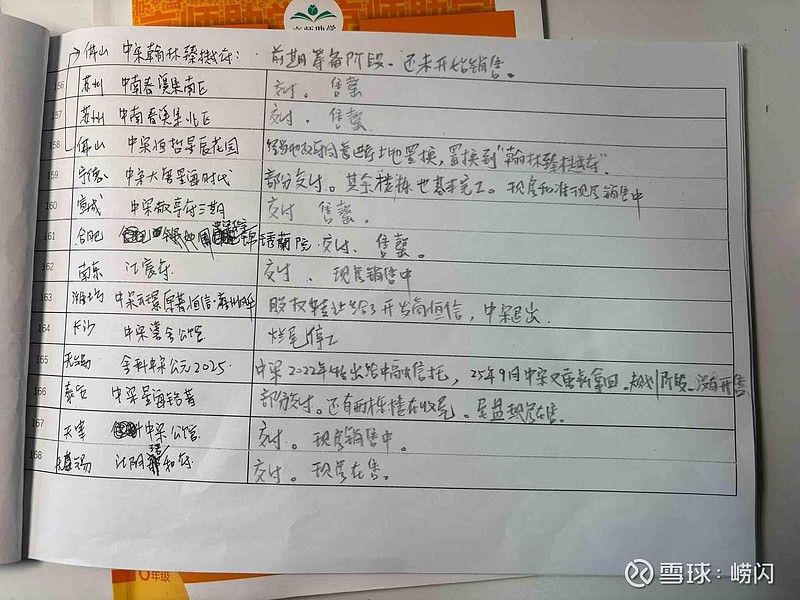 佛山 中梁翰林臻樾府: 前期筹备阶段、还未开始销售。
156 苏州 中南春溪集南区 交付。售罄
157 苏州 中南春溪集北区 交付。售罄
158 佛山 中梁恒哲星辰花园 置换到"翰林臻樾府"。
159 宁德 中梁大唐星海时代 部分交付。其余楼栋也基本完工。现房和准现房销售中
160 宣城 中梁敬亭府三期 交付 售罄。
161 合肥 锦绣兰院 交付、售罄。
162 南京 江宸府 交付、现房销售中
163 中梁 恒信 股权转让给了开发商恒信,中梁退出.
164 长沙 中梁 公馆 烂尾停工
165 无锡 金科中梁公元2025. 中梁2022年转出给中融信托,25年9月中梁又重新拿回。规划阶段、没有开售
166 泰안 中梁星海铭著 部分交付。还有两栋楼在收尾。尾盘现房在售。
167 天津 中梁公馆. 交付。现房销售中。
168 无锡 江阴 和府 交付。现房在售。
6年级
雪球:崂闪